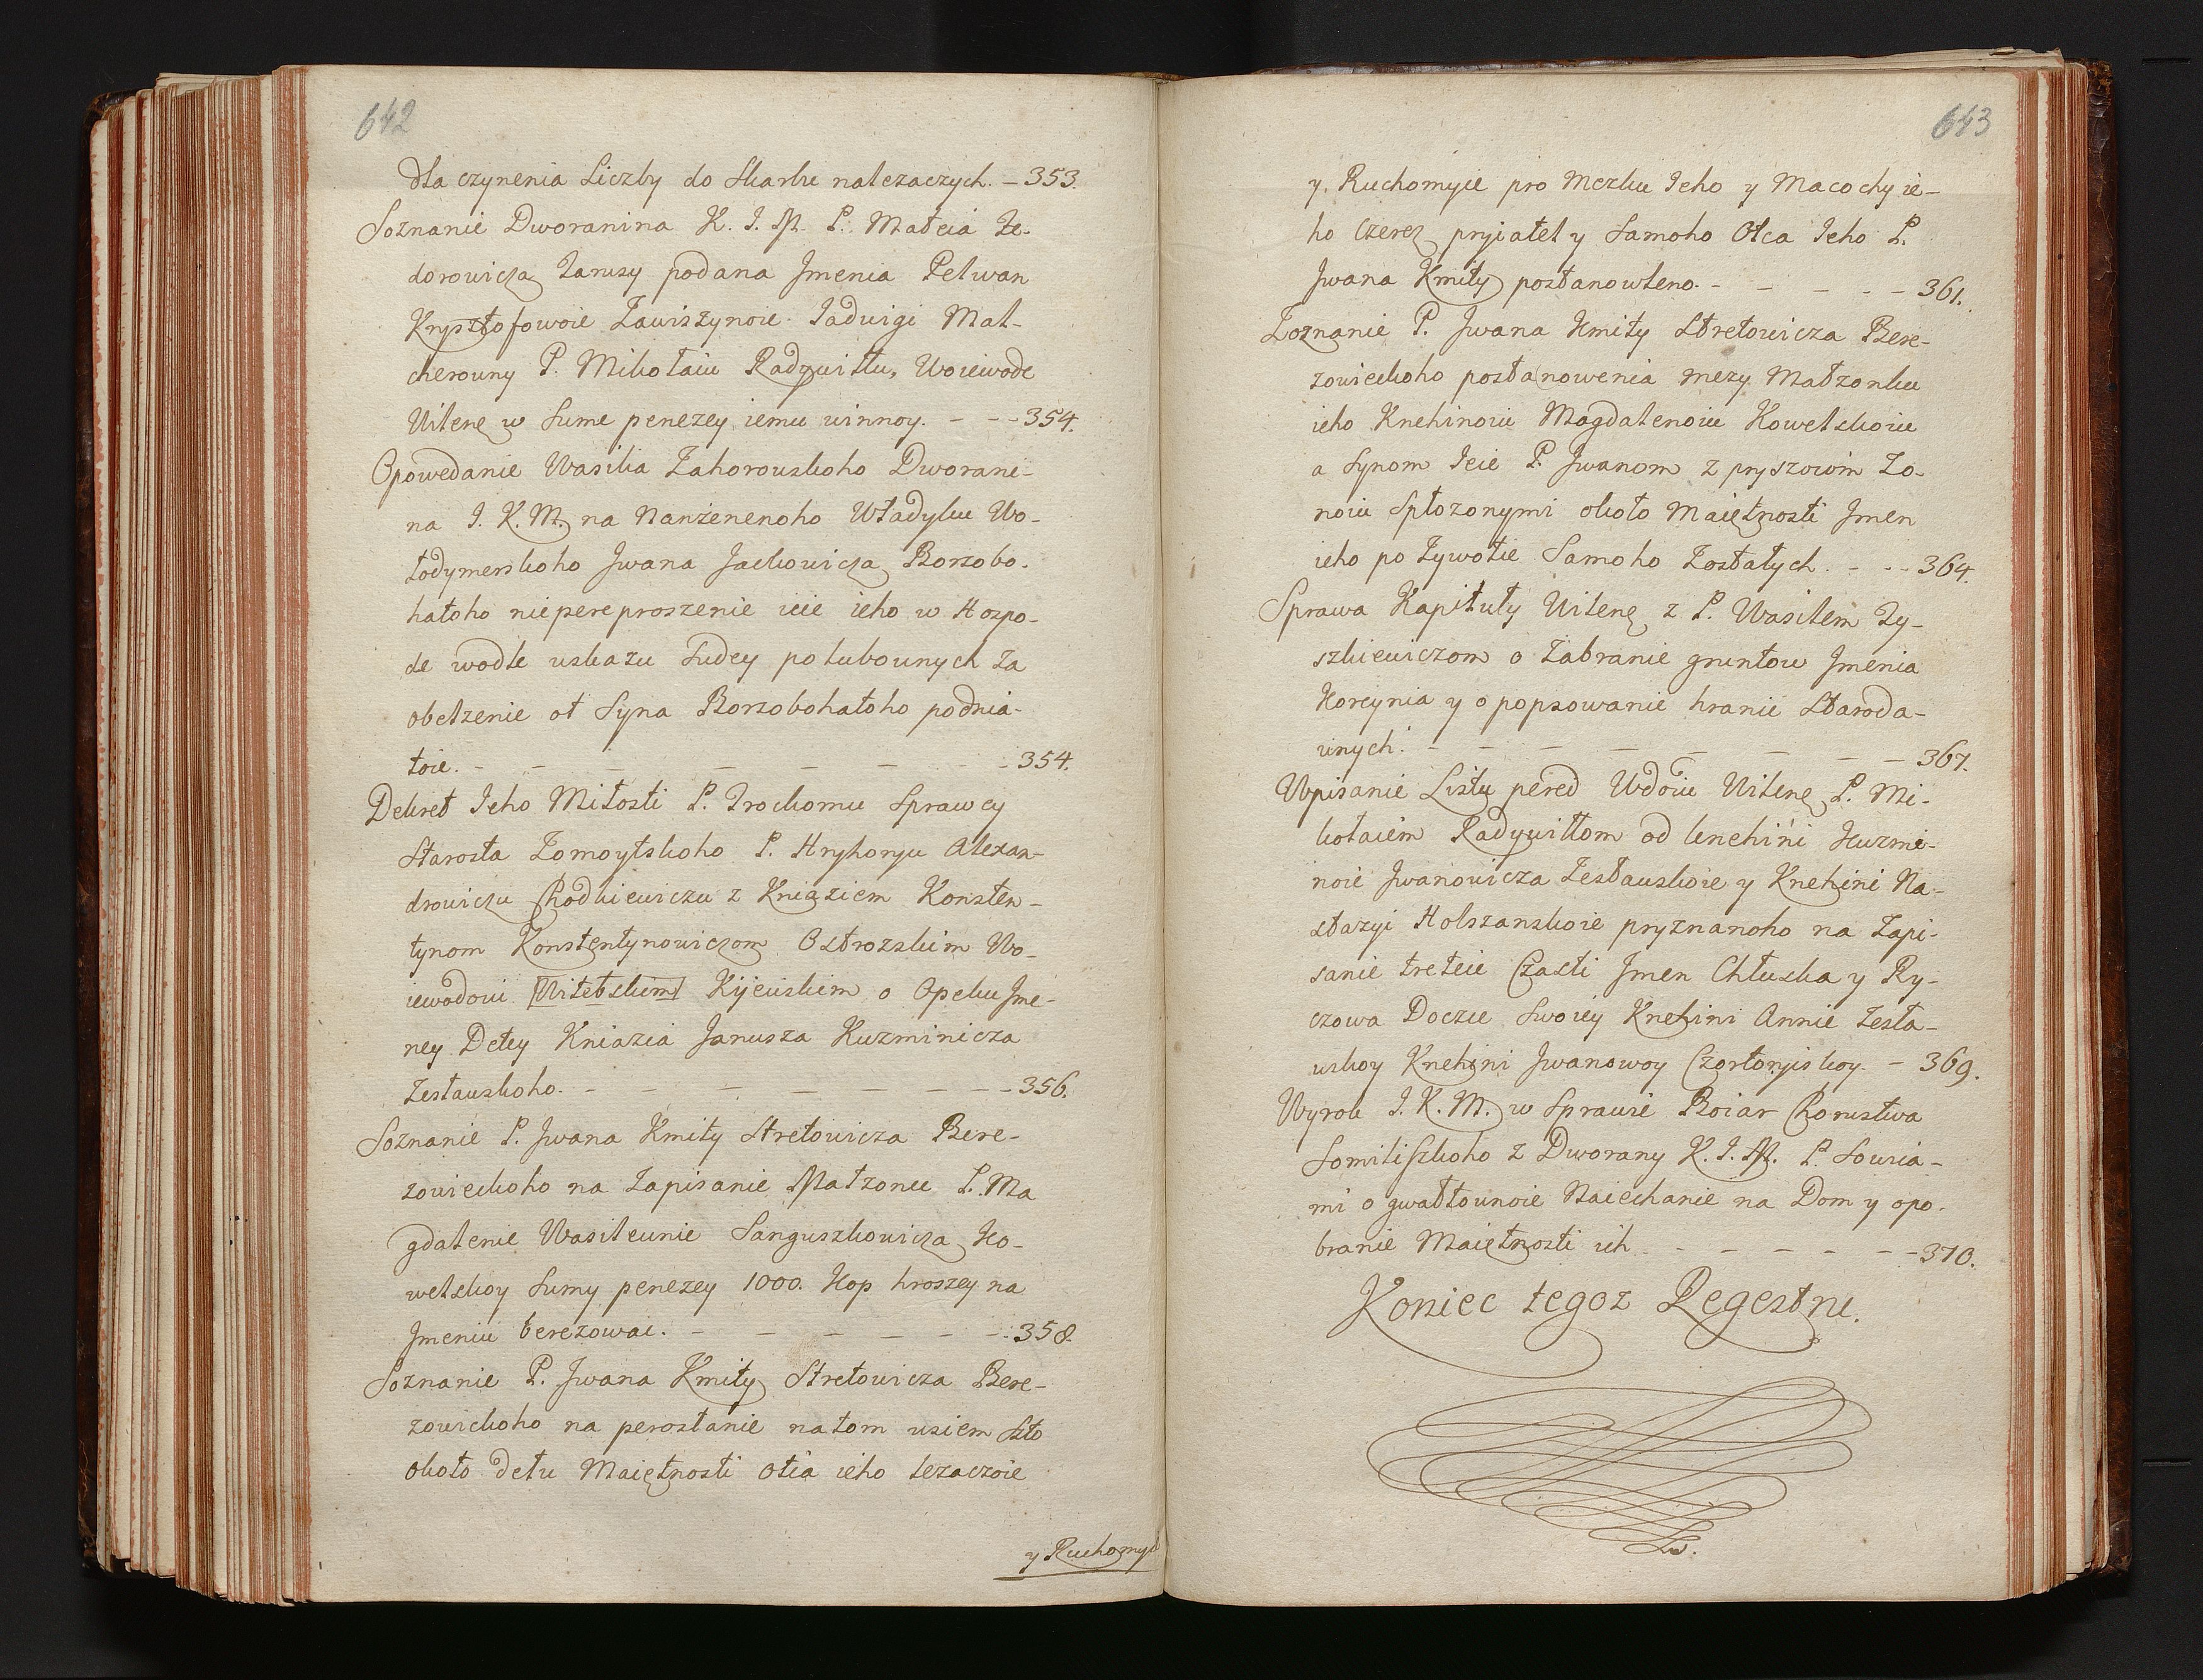 642
dla czynenia Liczby do Skarbu nalezaczych. – 353.
Soznanie Dworanina K. J. M. P. Mateia Fe-
dorowicza Zaruzy podana Jmenia Pelwan
Krysztofowoie Zawiszynoie Jadwigi Mal-
cherowny P. Mikołaiu Radywiłłu, Woiewode
Wilene w Sume penezey iemu winnoy. – – – 354.
Opowedanie Wasilia Zahorowskoho Dworani-
na J. K. M. na Narzenenoho Władyku Wo-
łodymerskoho Jwana Jackowicza Borzobo-
hatoho niepereproszenie ieie ieho w Hospo-
de wodle uskazu Sudey połubownych za
obelzenie ot Syna Borzobohatoho podnia-
toie. – – – – – – – 354.
Dekret Jeho Miłosti P. Trockomu Sprawcy
Starosta Zomoytskoho P. Hryhoryu Alexan-
drowiczu Chodkiewiczu z Kniaziem Konsten-
tynom Konstentynowiczom Ostrozskim Wo-
iewodoui Witebskim Kijewskim o Opeku Jme-
ney Detey Kniazia Janusza Kuzminicza
Zesławskoho. – – – – – – 356.
Soznanie P. Jwana Kmity Stretowicza Bere-
zowieckoho na Zapisanie Małzonce P. Ma
gdalenie Wasilewnie Sanguszkowicza Ko-
welskoy Sumy penezey 1000. Kop hroszey na
Jmeniu berezowcu. – – – – – – 358.
Soznanie P. Jwana Kmity Stretowicza Bere-
zowickoho na perestanie natom wsiem szto
około detu Maiętnosti otca ieho lezaczoie
y Ruchomyie
643
y. Ruchomyie pro Mezku Jeho y Macochy ie-
ho Czerez pryiatel y Samoho Otca Jeho P.
Jwana Kmity postanowleno. – – – – – 361.
Zoznanie P. Jwana Kmity Stretowicza Bere-
zowieckoho postanowenia mezy Małzonku
ieho Knehinoiu Magdalenoiu Kowelskoiu
a Synom Jeie P. Jwanom z pryszowim Zo-
noiu Spłozonymi około Maiętnosti Jmen
ieho po Zywotie Samoho Zostałych. – – – 364.
Sprawa Kapituły Wilene z P. Wasilem Ty-
szkiewiczom o Zabranie gruntow Jmenia
Horcynia y o popsowanie hranic Staroda-
wnych. – – – – – – – – 367.
Wpisanie Listu pered Wdoiu Wilene P. Mi-
kołaiem Radywiłłom od knehini Kuzmi-
noie Jwanowicza Zesławskoie y Knehini Na-
stazyi Holszanskoie pryznanoho na Zapi-
sanie treteie Czasti Jmen Chłuska y Ry-
czowa Doczce Swoiey Knehini Annie Zesła-
wskoy Knehini Jwanowoy Czortoryiskoy. – 369.
Wyrok J. K. M. w Sprawie Boiar Chorustwa
Somiliszkoho z Dworany K. J. M. P. Sowia-
mi o gwałtownoie Naiechanie na Dom y opo-
branie Maiętnosti ich. – – – – – – 370.
Koniec tegoz Regestru.